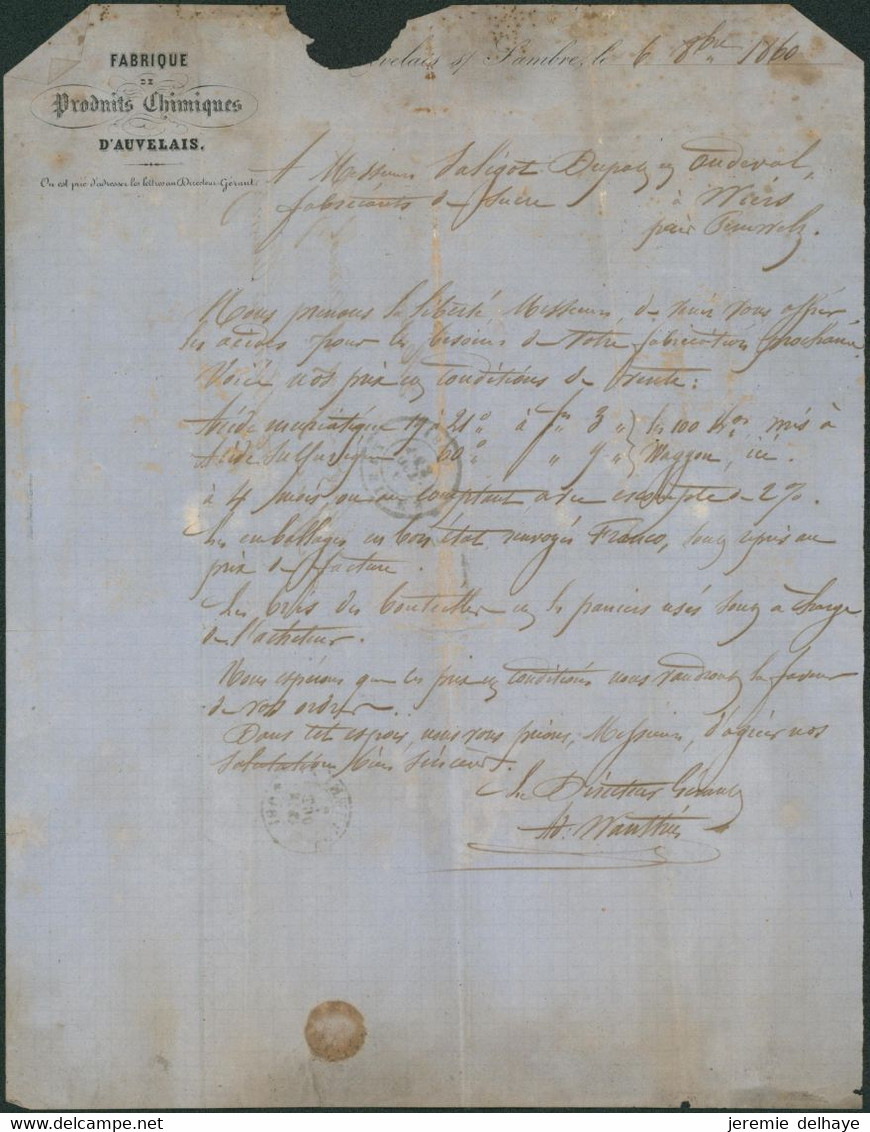 FABRIQUE
DE
Produits Chimiques
D'AUVELAIS.
On est prié d'adresser les lettres au Directeur-Gérant.
velais s/ Sambre, le 6 8bre 1860
A Messieurs Dupont et
fabricants de sucre à Wiers
par Péruwelz.
Nous prenons la liberté Messieurs, de venir vous offrir
les acides pour les besoins de votre fabrication prochaine
Voici nos prix et conditions de vente:
Acide muriatique 19 à 21° à frs 3 " } les 100 Kos mis à
Acide Sulfurique 60° " 9 " } Waggon, ici.
à 4 mois, ou au comptant avec escompte de 2%.
Les emballages en bon état renvoyés Franco, sont repris au
prix de facture.
Les bris des bouteilles et les paniers usés sont à charge
de l'acheteur.
Nous espérons que ces prix et conditions nous vaudront la faveur
de vos ordres.
Dans cet espoir, nous vous prions, Messieurs, d'agréer nos
salutations bien sincères.
Le Directeur Gérant
Ad. Wauthier
www.delcampe.net
jeremie delhaye